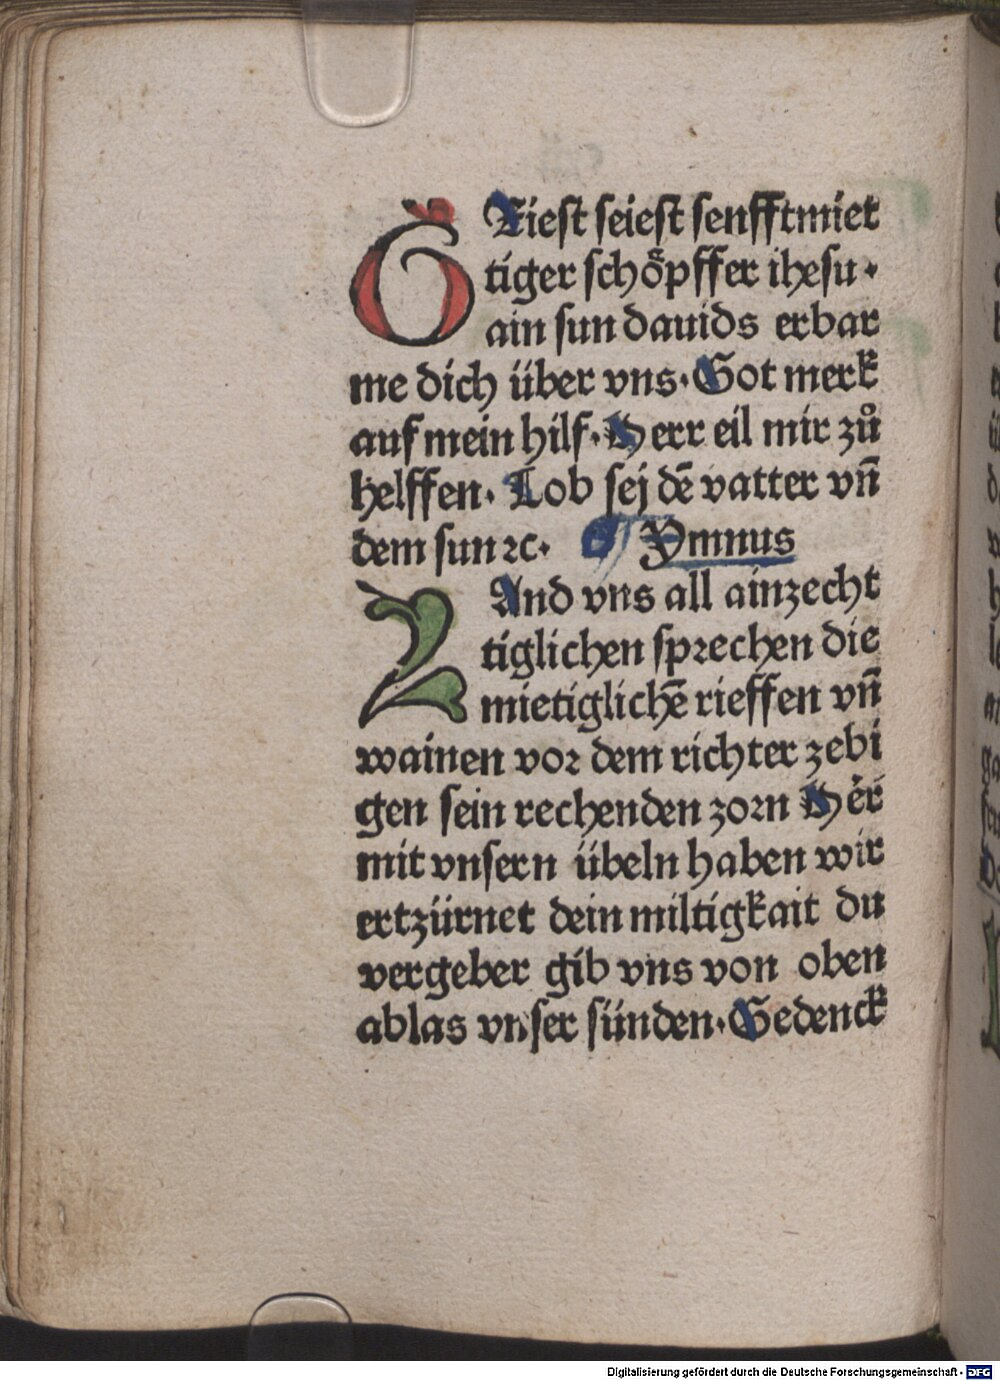 GRiest seiest senfftmiet
tiger schöpffer ihesu·
ain sun dauids erbar
me dich über vns· Got merk
auf mein hilf· Herr eil mir zů
helffen· Lob sej dē vatter vn̄
dem sun ⁊c· Ymnus
And vns all ainzecht
tiglichen sprechen die
mietiglichē rieffen vn̄
wainen vor dem richter zebi
gen sein rechenden zorn Her
mit vnsern übeln haben wir
ertzürnet dein miltigkait du
vergeber gib vns von oben
ablas vnser sünden· Gedenck
Digitalisierung gefördert durch die Deutsche Forschungsgemeinschaft - DFG